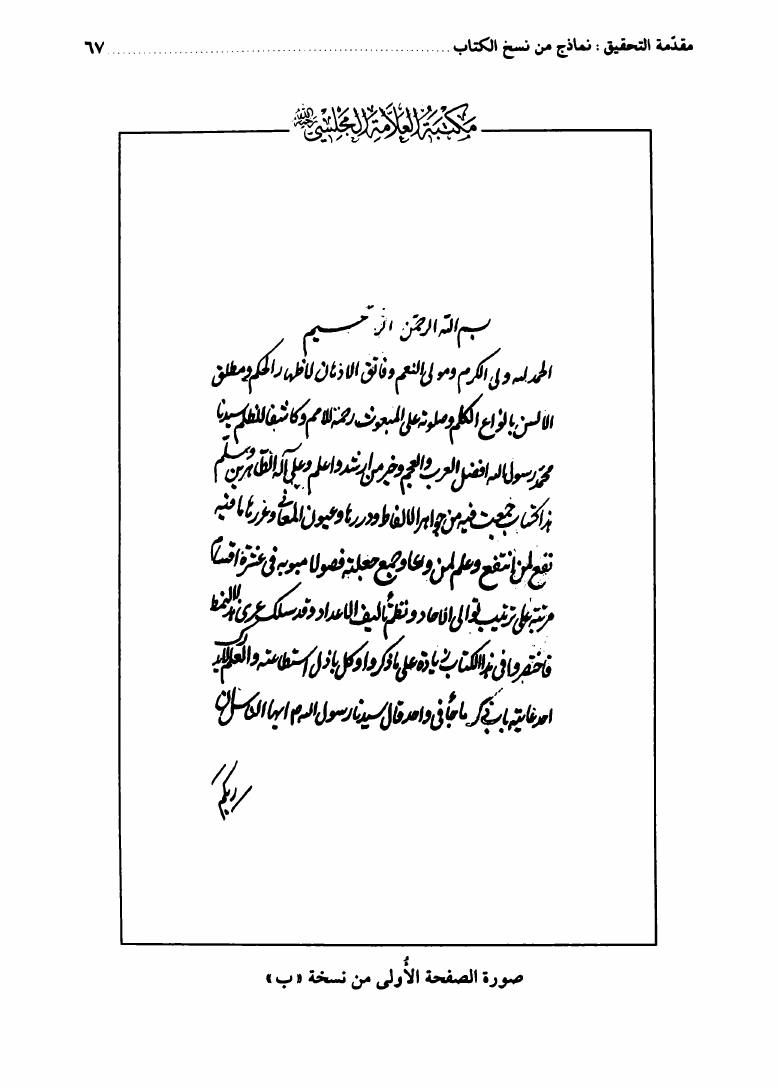 مقدّمة التحقيق : نماذج من نسخ الكتاب ........................................ ٦٧
مكتبة العلامة المجلسي
بسم الله الرحمن الرحيم
الحمد لله ولى الكرم ومولى النعم وفاتق الاذهان لاظهار الحكم ومطلق
الالسن بانواع الكلم وصلوته على المبعوث رحمة للامم وكاشفا للظلم سيدنا
محمد رسول الله افضل العرب والعجم وخير من ارشد واعلم وعلى آله الطاهرين وسلم
هذا كتاب جمعت فيه من جواهر الالفاظ ودررها وعيون المعانى وغررها ما فيه
نفع لمن انتفع وعلم لمن وعا وجمع جعلته فصولا مبوبه فى عشرة اقسام
مرتبة على ترتيب توالى الاحاد ونظم تأليف الاعداد وقد سلك غيرى هذا النمط
فاختصروا فى هذا الكتاب زيادة على ما ذكروا وكل باذل استطاعته والعلم لا يدرك
احد غايته باب ذكر ما جأ فى واحد قال سيدنا رسول الله م ايها الناس ان
ربكم
صورة الصفحة الأُولى من نسخة «ب»